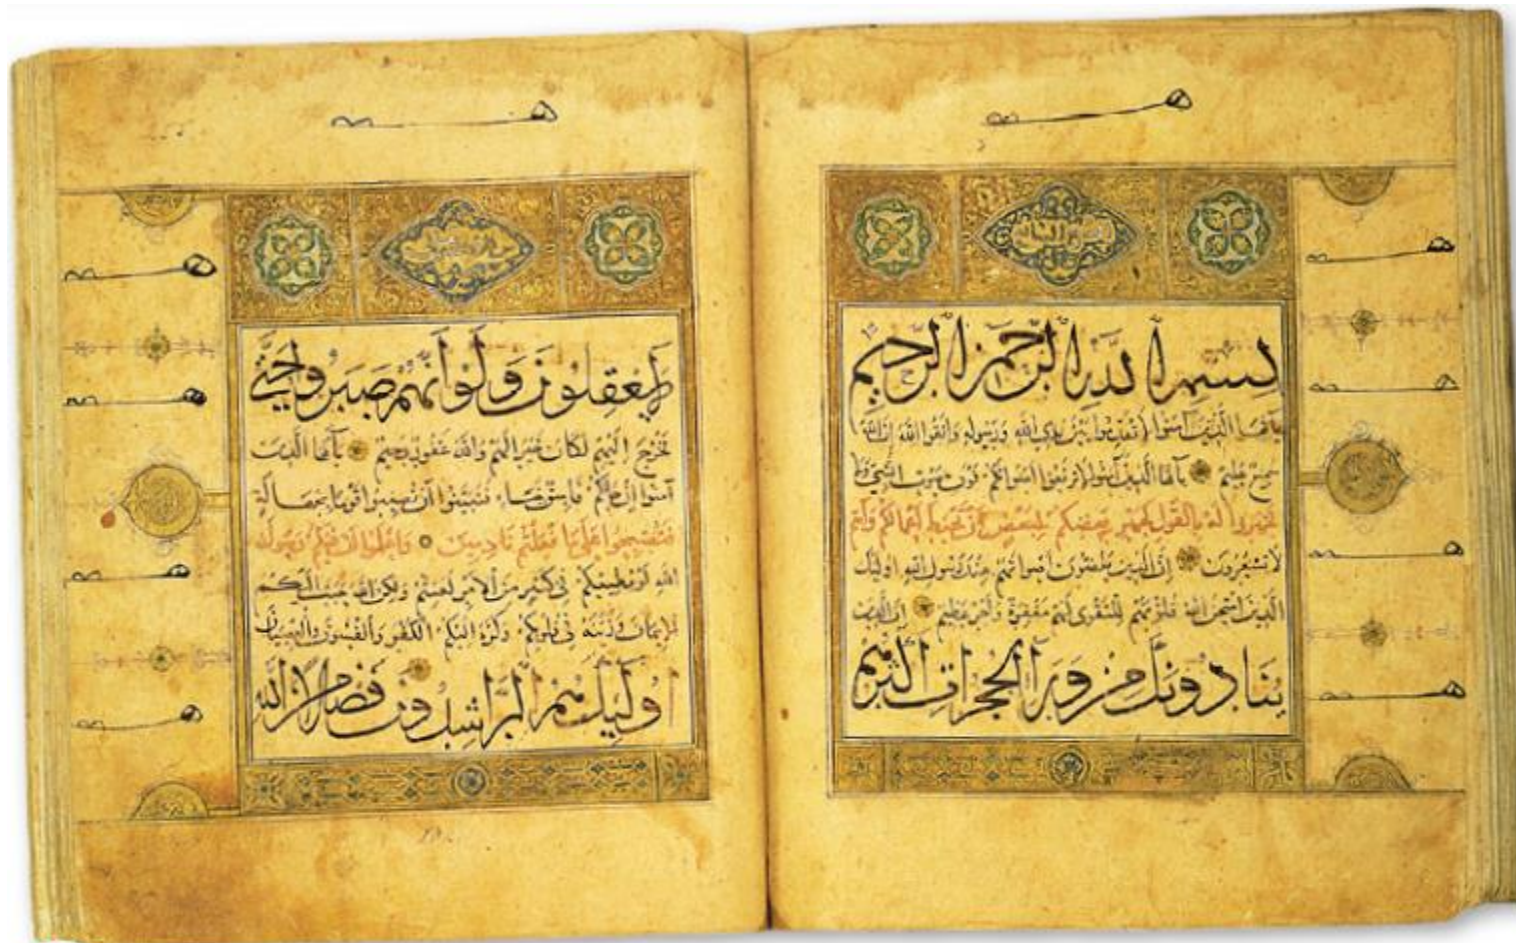 بسم الله الرحمن الرحيم
يا أيها الذين آمنوا لا تقدموا بين يدي الله ورسوله واتقوا الله إن الله
سميع عليم يا أيها الذين آمنوا لا ترفعوا أصواتكم فوق صوت النبي ولا
تجهروا له بالقول كجهر بعضكم لبعض أن تحبط أعمالكم وأنتم
لا تشعرون إن الذين يغضون أصواتهم عند رسول الله أولئك
الذين امتحن الله قلوبهم للتقوى لهم مغفرة وأجر عظيم إن الذين
ينادونك من وراء الحجرات أكثرهم
لا يعقلون ولو أنهم صبروا حتى
تخرج إليهم لكان خيرا لهم والله غفور رحيم يا أيها الذين
آمنوا إن جاءكم فاسق بنبأ فتبينوا أن تصيبوا قوما بجهالة
فتصبحوا على ما فعلتم نادمين واعلموا أن فيكم رسول
الله لو يطيعكم في كثير من الأمر لعنتم ولكن الله حبب إليكم
الإيمان وزينه في قلوبكم وكره إليكم الكفر والفسوق والعصيان
أولئك هم الراشدون فضلا من الله